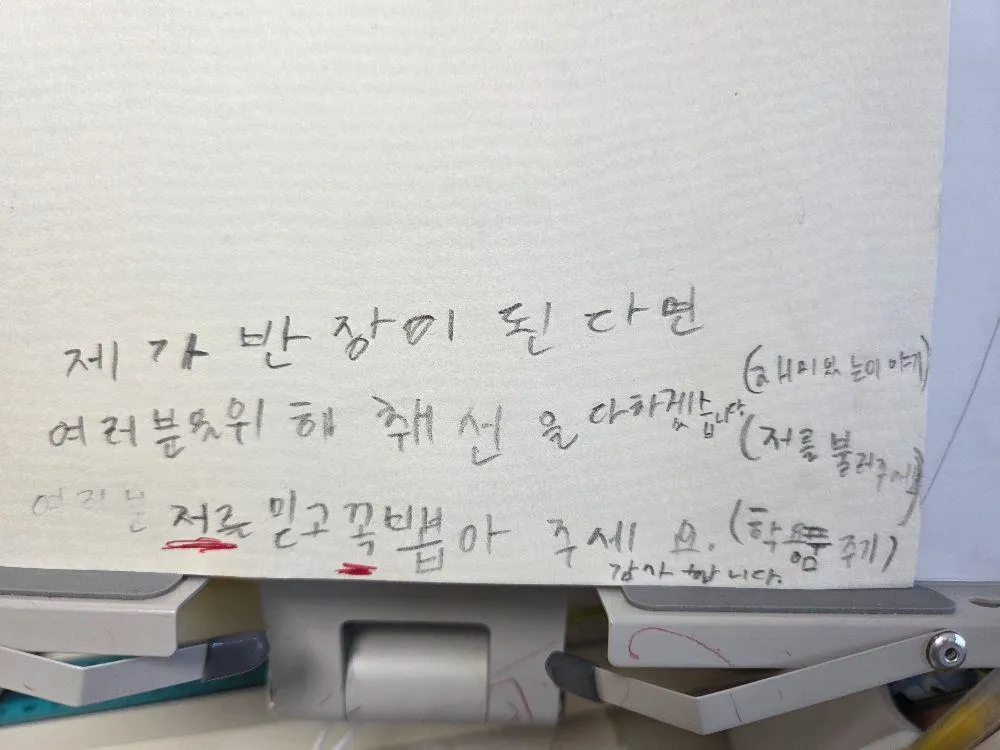 제가 반장이 된다면
(재미있는이야기)
여러분 위해 최선을 다하겠습니다
(저를 불러주세요)
여러분 저를 믿고 꼭 뽑아 주세요. (학 주기)
감사합니다.